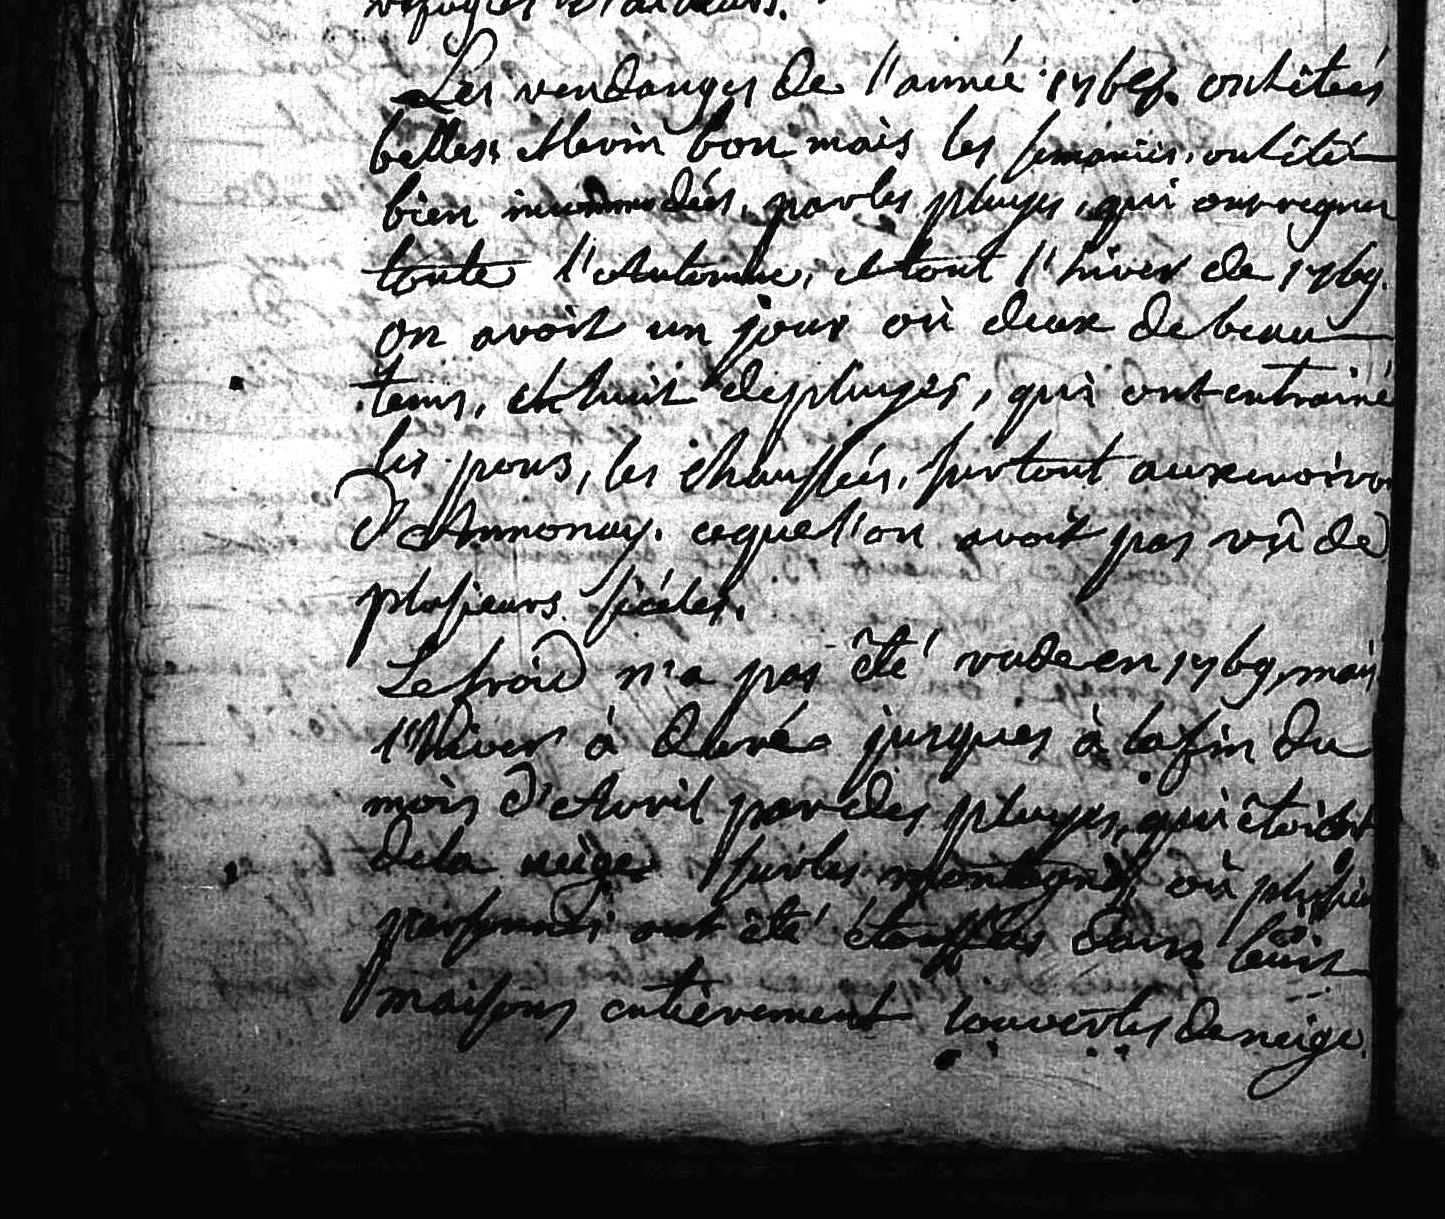 Les vendanges de l'année 1768. ont étées
belles: et le vin bon mais les semances, ont été
bien innondées, par les pluyes, qui ont regner
toute l'Automne, et tout l'hiver de 1769.
on avoit un jour où deux de beau
tems, et huit de pluyes, qui ont entrainé
les pons, les chaussées, surtout aux
d'Annonay. ce que l'on avoit pas vû de
plusieurs siécles.
Le froid n'a pas été rude en 1769, mais
l'hiver à duré jusques à la fin du
mois d'Avril par des pluyes, qui étoient
de la neige sur les montagnes, où plusieu
personnes ont été étouffées dans leurs
maisons entièrement couvertes de neige.